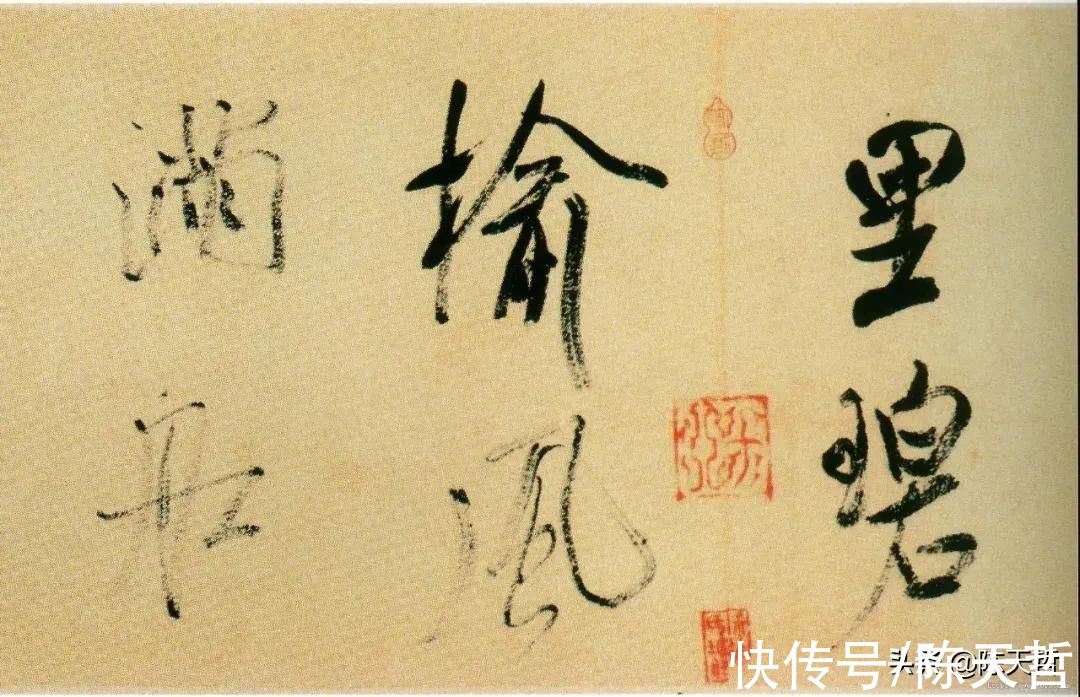 里碧
榆風
滿舡
快传号/陈天哲
头条 @陈天哲